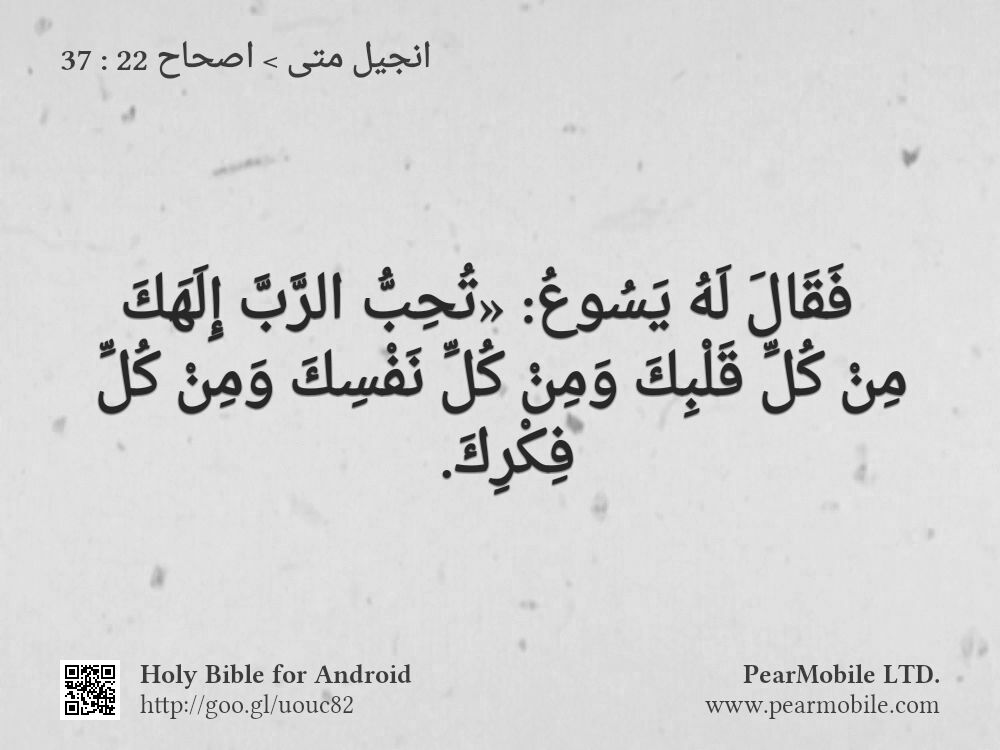 انجيل متى > اصحاح 22 : 37
فَقَالَ لَهُ يَسُوعُ: «تُحِبُّ الرَّبَّ إِلَهَكَ
مِنْ كُلِّ قَلْبِكَ وَمِنْ كُلِّ نَفْسِكَ وَمِنْ كُلِّ
فِكْرِكَ.
Holy Bible for Android
http://goo.gl/uouc82
PearMobile LTD.
www.pearmobile.com